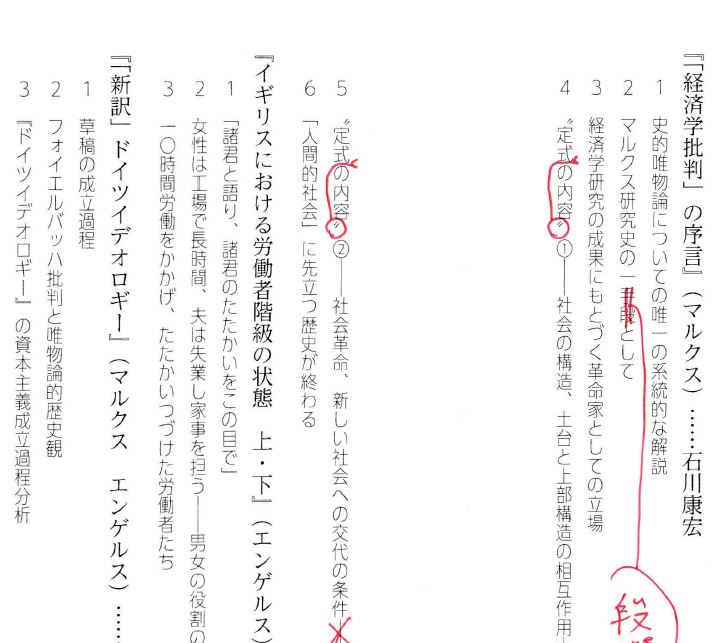 『「経済学批判」の序言』（マルクス）……石川康宏
1　史的唯物論についての唯一の系統的な解説
2　マルクス研究史の一手段として
3　経済学研究の成果にもとづく革命家としての立場
4　〝定式の内容〟①――社会の構造、土台と上部構造の相互作用―
5　〝定式の内容〟②――社会革命、新しい社会への交代の条件
6　「人間的社会」に先立つ歴史が終わる
『イギリスにおける労働者階級の状態　上・下』（エンゲルス）
1　「諸君と語り、諸君のたたかいをこの目で」
2　女性は工場で長時間、夫は失業し家事を担う――男女の役割の
3　一〇時間労働をかかげ、たたかいつづけた労働者たち
『「新訳」ドイツイデオロギー』（マルクス　エンゲルス）……
1　草稿の成立過程
2　フォイエルバッハ批判と唯物論的歴史観
3　『ドイツイデオロギー』の資本主義成立過程分析
段